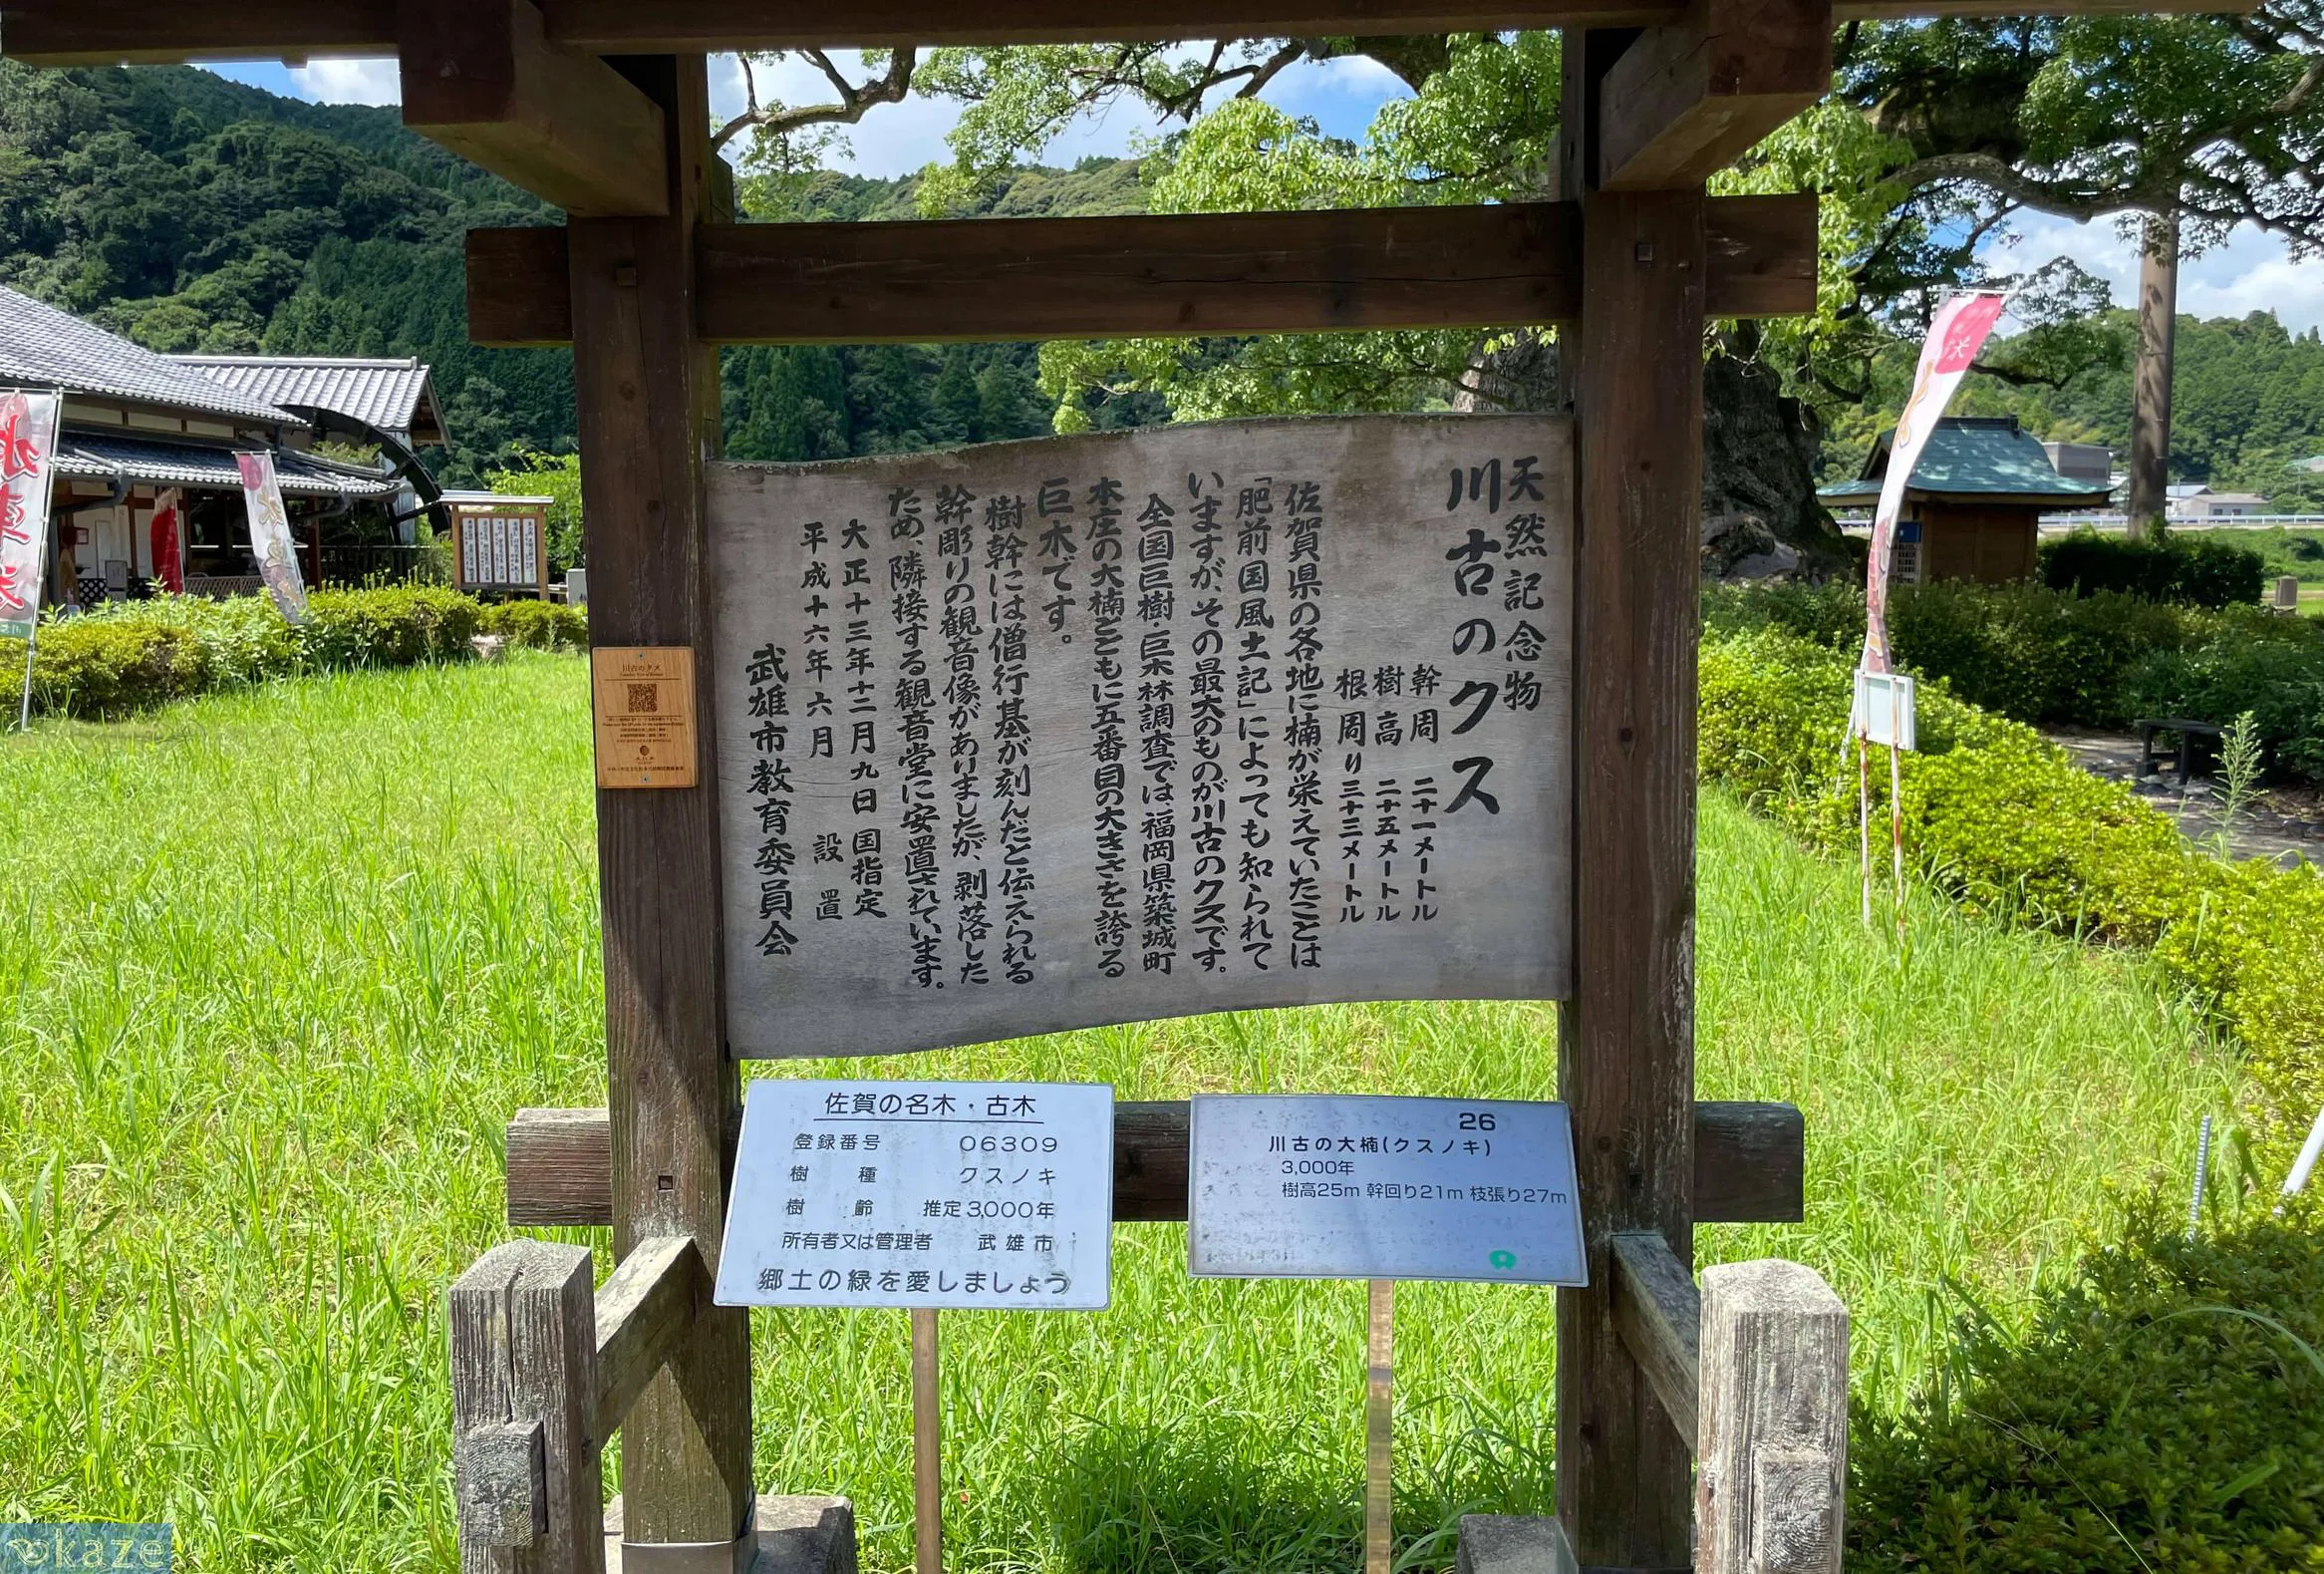 天然記念物
川古のクス
幹周 二十一メートル
樹高 二十五メートル
根周り三十三メートル
佐賀県の各地に楠が栄えていたことは
「肥前国風土記」によっても知られて
いますが、その最大のものが川古のクスです。
全国巨樹・巨木林調査では、福岡県築城町
本庄の大楠とともに五番目の大きさを誇る
巨木です。
樹幹には僧行基が刻んだと伝えられる
幹彫りの観音像がありましたが、剥落した
ため、隣接する観音堂に安置されています。
大正十三年十二月九日 国指定
平成十六年六月 設置
武雄市教育委員会
川古のクス
佐賀の名木・古木
登録番号 06309
樹種 クスノキ
樹齢 推定3,000年
所有者又は管理者 武雄市
郷土の緑を愛しましょう
26
川古の大楠(クスノキ)
3,000年
樹高25m 幹回り21m 枝張り27m
okaze